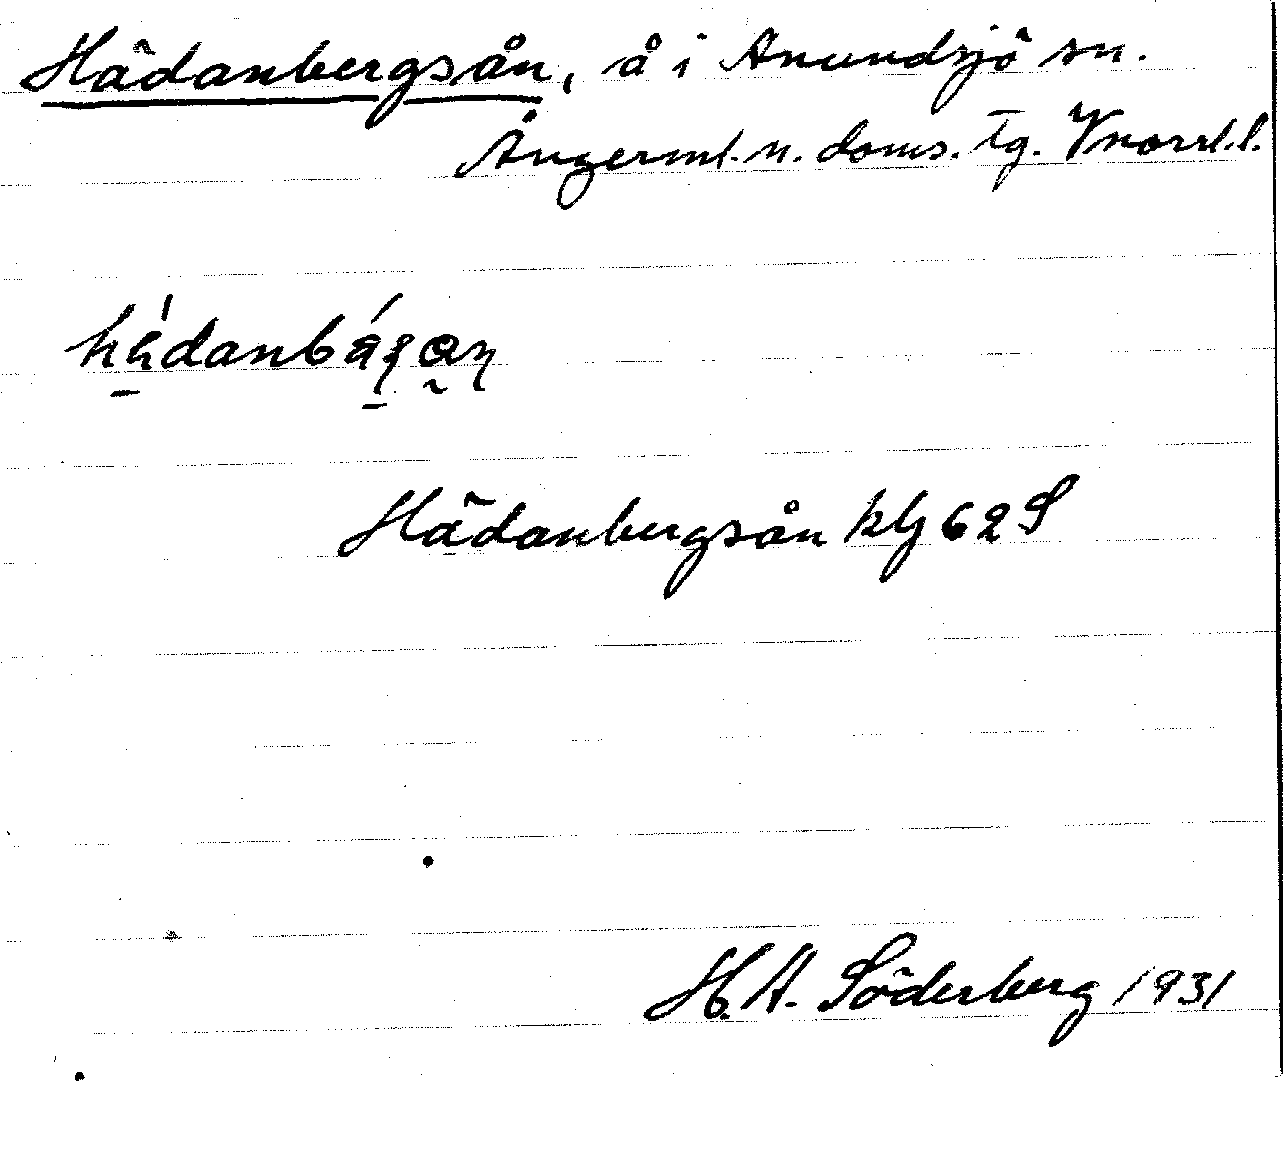 Hädanbergsån, å i Anundsjö sn.
Ångerml. n. doms. tg. Vnorrl. l.
Hädanbergsån kbl 62 S
H. A. Söderberg 1931